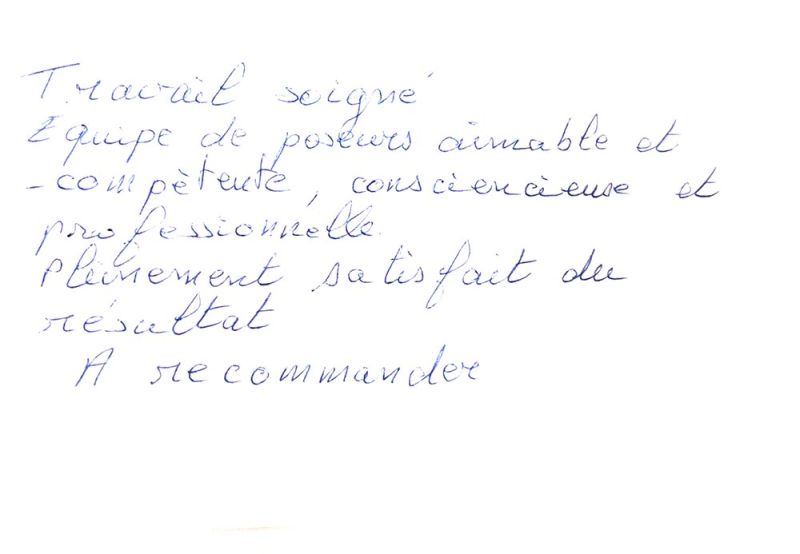 Travail soigné
Equipe de poseurs aimable et
- compètente, consciencieuse et
professionnelle.
Pleinement satisfait du
résultat
A recommander